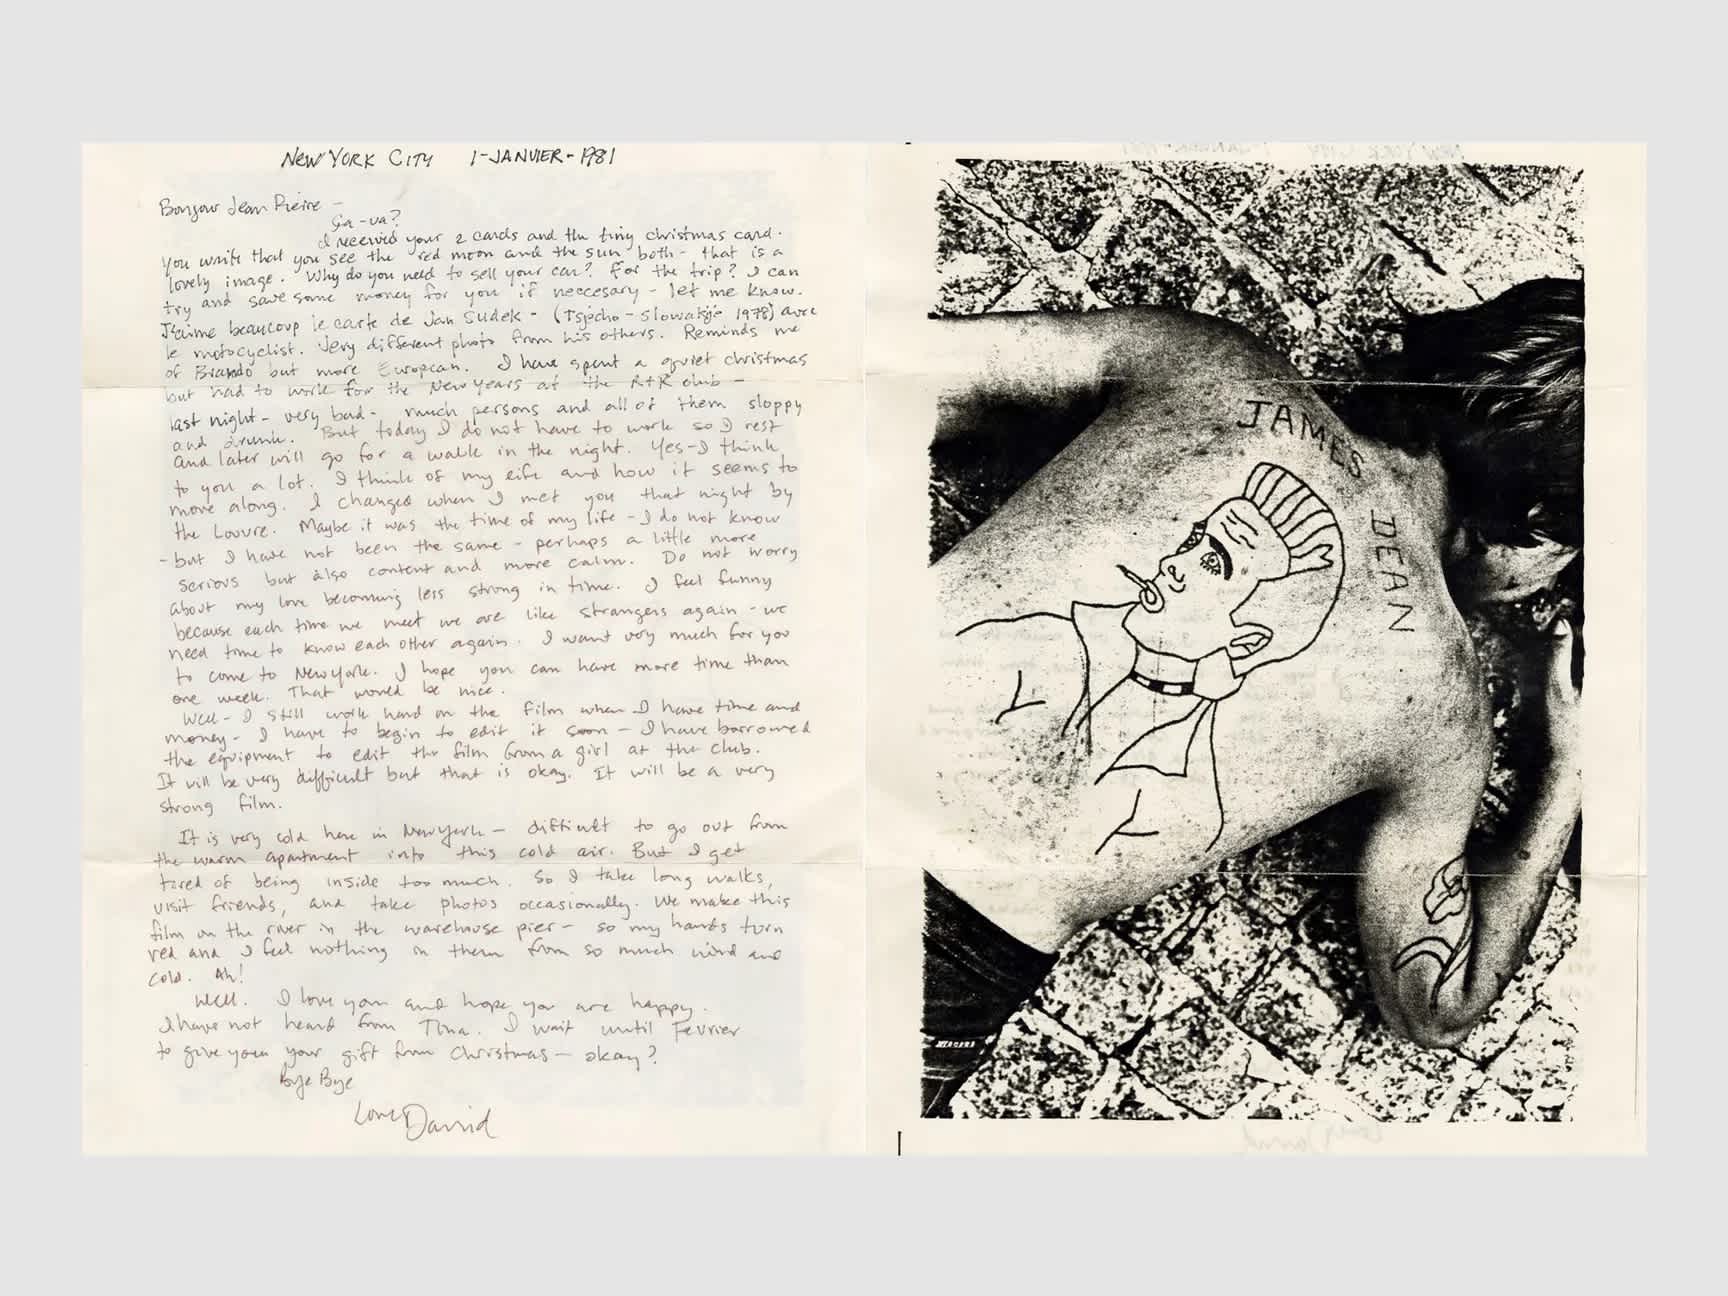 NEW YORK CITY 1-JANVIER-1981
Bonjour Jean Pierre -
Ça-va?
I received your 2 cards and the tiny christmas card.
You write that you see the red moon and the sun both - that is a
lovely image. Why do you need to sell your car? For the trip? I can
try and save some money for you if neccesary - let me know.
J'aime beaucoup le carte de Jan Sudek - (Tsjecho-Slowakije 1978) avec
le motocyclist. Very different photo from his others. Reminds me
of Brando but more European. I have spent a quiet christmas
but had to work for the New Years at the R+R club -
last night - very bad - much persons and all of them sloppy
and drunk. But today I do not have to work so I rest
and later will go for a walk in the night. Yes - I think
to you a lot. I think of my life and how it seems to
move along. I changed when I met you that night by
the Louvre. Maybe it was the time of my life - I do not know
- but I have not been the same - perhaps a little more
serious but also content and more calm. Do not worry
about my love becoming less strong in time. I feel funny
because each time we meet we are like strangers again - we
need time to know each other again. I want very much for you
to come to New York. I hope you can have more time than
one week. That would be nice.
Well - I still work hard on the film when I have time and
money - I have to begin to edit it soon - I have borrowed
the equipment to edit the film from a girl at the club.
It will be very difficult but that is okay. It will be a very
strong film.
It is very cold here in New York - difficult to go out from
the warm apartment into this cold air. But I get
tired of being inside too much. So I take long walks,
visit friends, and take photos occasionally. We make this
film on the river in the warehouse pier - so my hands turn
red and I feel nothing in them from so much wind and
cold. Ah!
Well. I love you and hope you are happy.
I have not heard from Tina. I wait until Fevrier
to give you your gift from Christmas - okay?
Bye Bye
Love David
JAMES DEAN